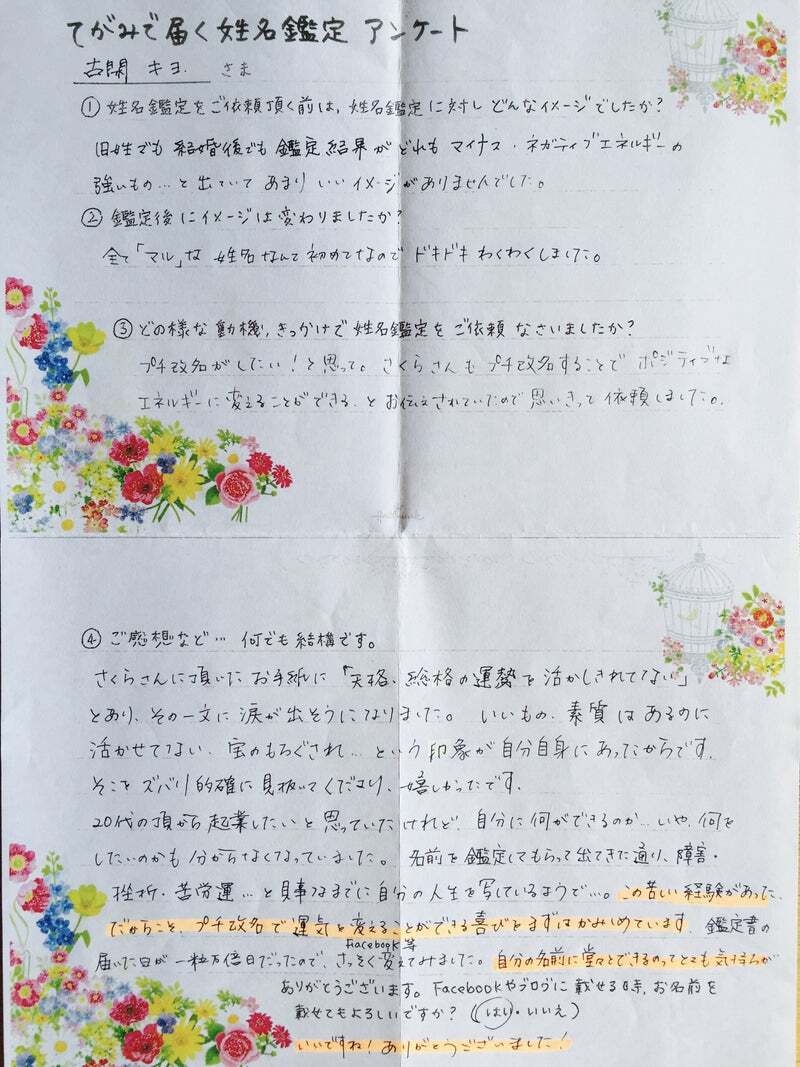 てがみで届く姓名鑑定 アンケート
古閑 キヨ さま
① 姓名鑑定をご依頼頂く前は、姓名鑑定に対しどんなイメージでしたか？
旧姓でも結婚後でも鑑定結果がどれもマイナス・ネガティブエネルギーの
強いもの…と出ていてあまりいいイメージがありませんでした。
② 鑑定後にイメージは変わりましたか？
全て「マル」な姓名なんて初めてなのでドキドキわくわくしました。
③ どの様な動機、きっかけで姓名鑑定をご依頼なさいましたか？
プチ改名がしたい！と思って。さくらさんもプチ改名することでポジティブな
エネルギーに変えることができるとお伝えされていたので思いきって依頼しました。
④ ご感想など… 何でも結構です。
さくらさんに頂いたお手紙に「天格、総格の運勢を活かしきれてない」
とあり、その一文に涙が出そうになりました。いいもの、素質はあるのに
活かせてない、宝のもちぐされ…という印象が自分自身にあったからです。
そこをズバリ的確に見抜いてくださり、嬉しかったです。
20代の頃から起業したいと思っていたけれど、自分に何ができるのか…いや、何を
したいのかも分からなくなっていました。名前を鑑定してもらって出てきた通り、障害・
挫折・苦労運…と見事なまでに自分の人生を写しているようで…。この苦しい経験があった
だからこそ、プチ改名で運気を変えることができる喜びをまずはかみしめています。鑑定書の
Facebook等
届いた日が一粒万倍日だったので、さっそく変えてみました。自分の名前に堂々とできるのってとても気持ちが
ありがとうございます。Facebookやブログに載せる時、お名前を
載せてもよろしいですか？（はい・いいえ）
いいですね！ありがとうございました！